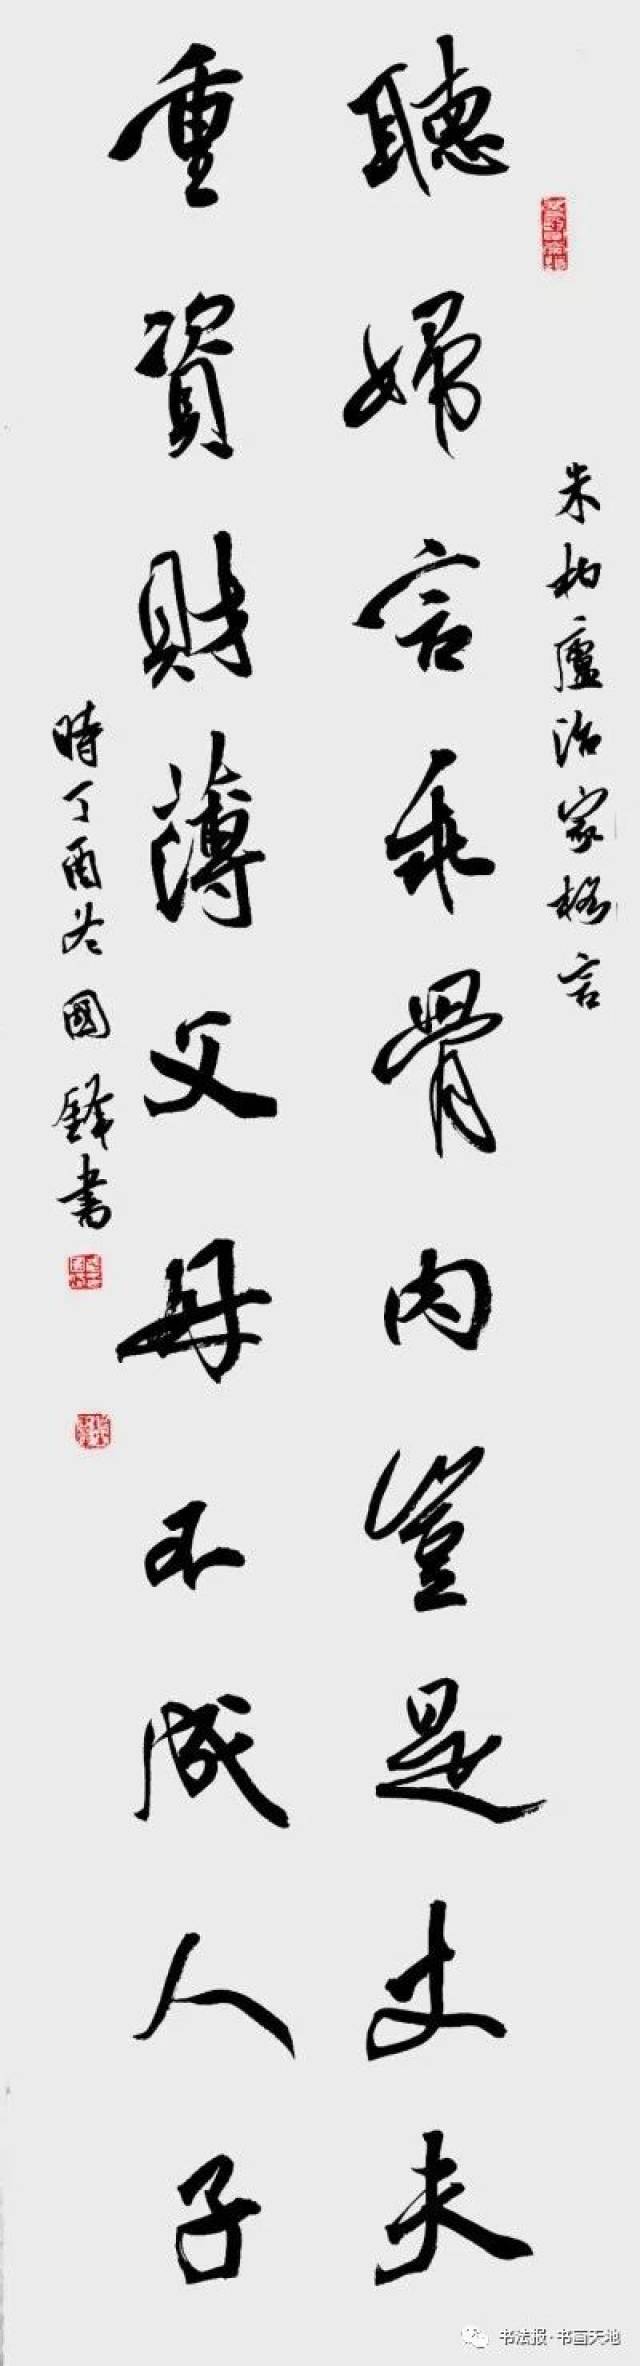 朱柏廬治家格言
聽婦言乖骨肉豈是丈夫
重資財薄父母不成人子
時丁酉冬國鋒書
书法报·书画天地